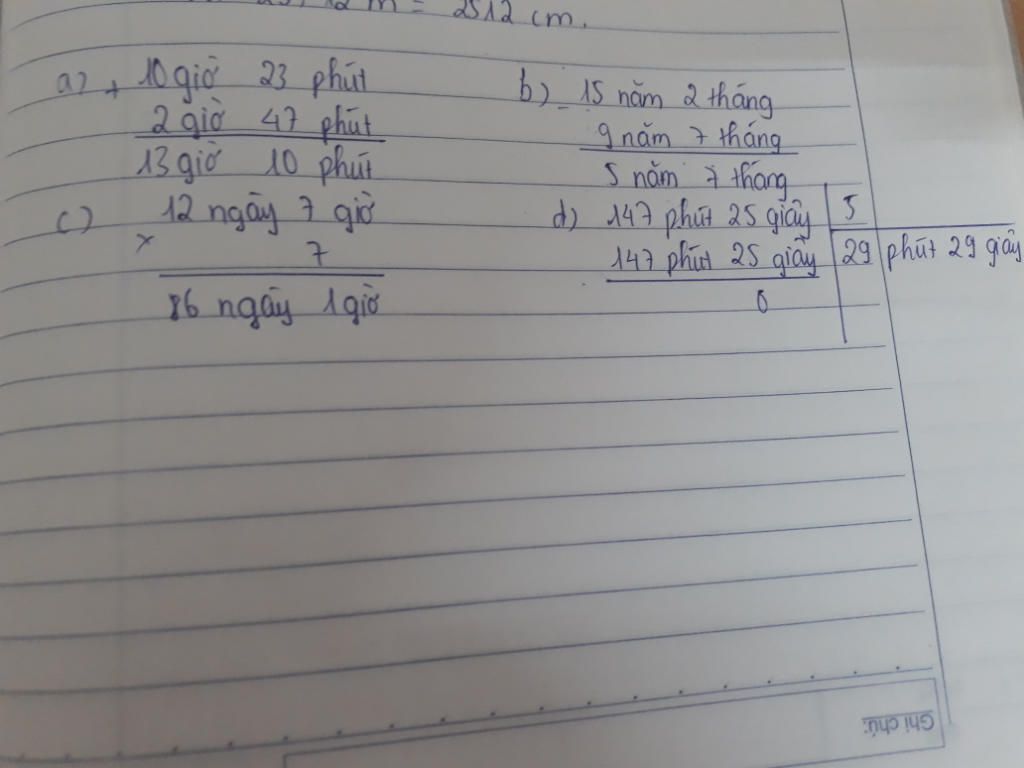 25,12 m = 2512 cm.
a) + 10 giờ 23 phút
2 giờ 47 phút
13 giờ 10 phút
b) - 15 năm 2 tháng
9 năm 7 tháng
5 năm 7 tháng
c) 12 ngày 7 giờ
x 7
86 ngày 1 giờ
d) 147 phút 25 giây 5
147 phút 25 giây 29 phút 29 giây
0
Ghi chú: